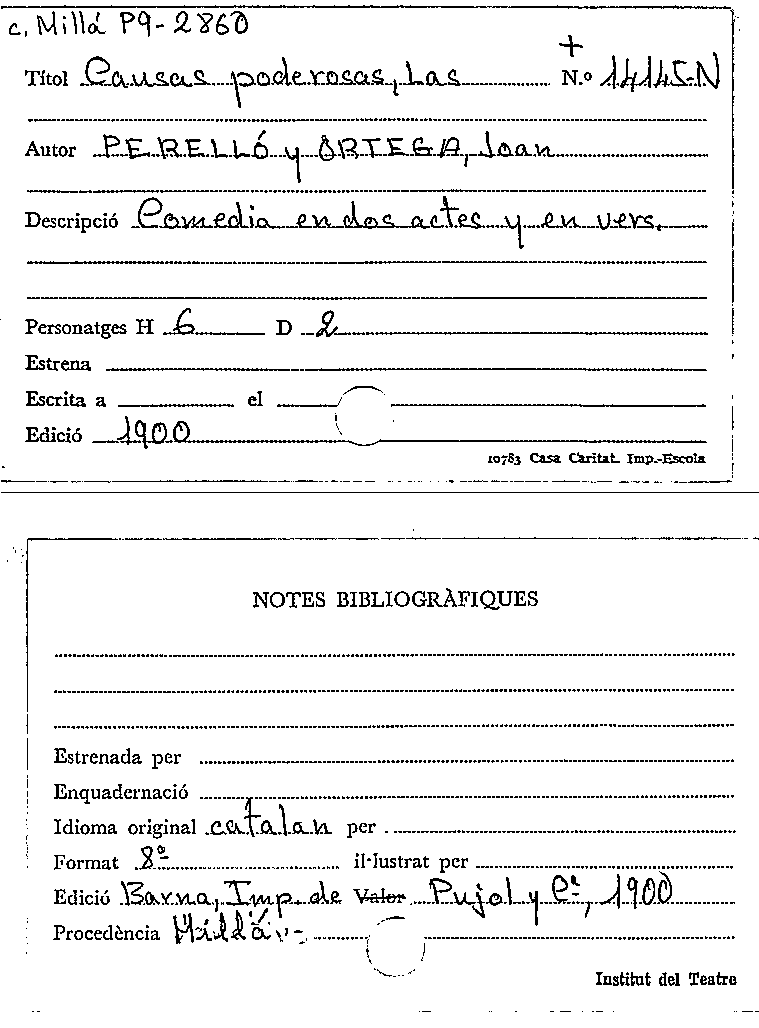 c. Millá P9-2860
+
Títol Causas poderosas, Las N.º 14145-N
Autor PERELLÓ y ORTEGA, Joan
Descripció Comedia en dos actes y en vers.
Personatges H 6 D 2
Estrena
Escrita a el
Edició 1900
10783 Casa Caritat. Imp.-Escola
NOTES BIBLIOGRÀFIQUES
Estrenada per
Enquadernació
Idioma original catalan per
Format 8º il·lustrat per
Edició Barna, Imp. de Valor Pujol y Cª, 1900
Procedència Millá.-
Institut del Teatre